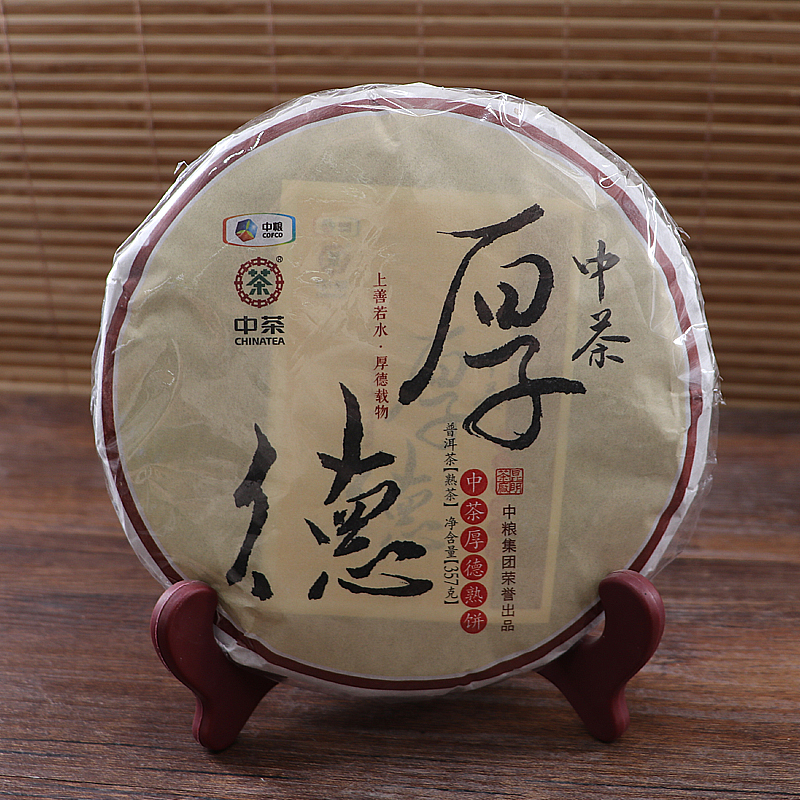 中粮
COFCO
茶®
中茶
CHINATEA
上善若水·厚德载物
厚德
中茶
普洱茶【熟茶】 净含量【357克】
中茶厚德熟饼
中粮集团荣誉出品